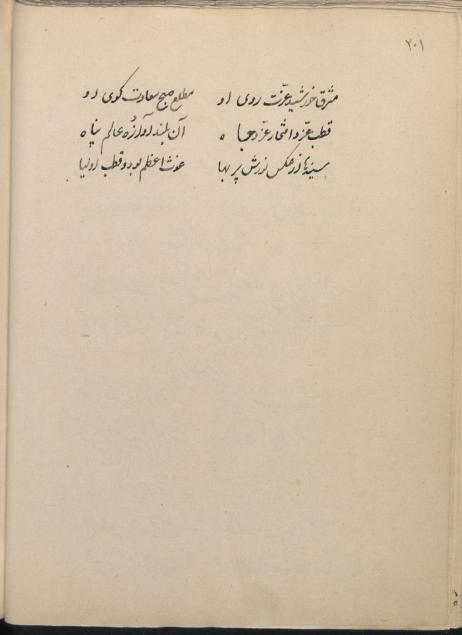 ۲۰۱
مشرق خورشید عزت روی او مطلع صبح سعادت کوی او
قطب عز و افتخار عز و جاه آن بلند آوازهٔ عالم پناه
سینها از عکس نورش پر بها غوث اعظم بود و قطب اولیا